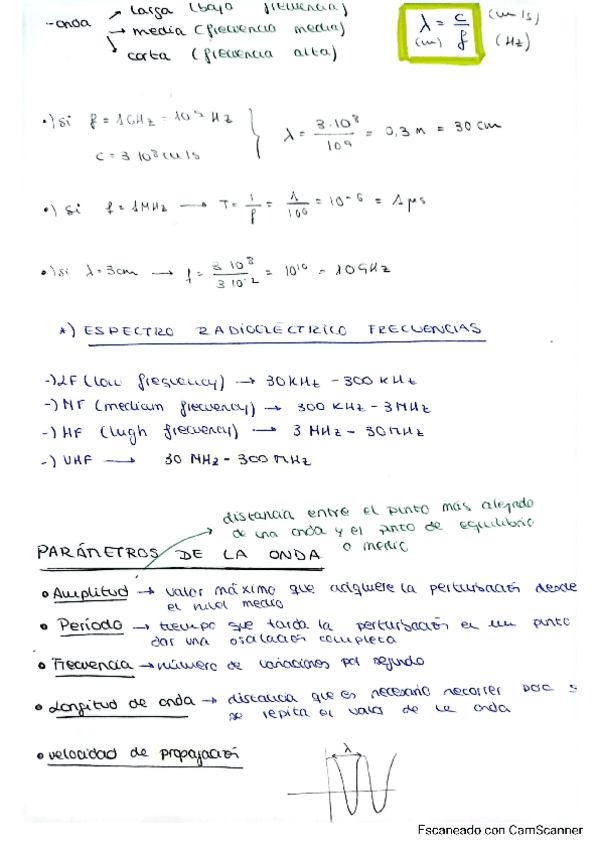 -onda → larga (baja frecuencia)
→ media (frecuencia media)
→ corta (frecuencia alta)
λ = c/f (m/s)
(m) (Hz)
•) si f = 1GHz = 10⁹ Hz
c = 3 10⁸ m/s
λ = 3·10⁸/10⁹ = 0,3 m = 30 cm
•) si f = 1MHz → T = 1/f = 1/10⁶ = 10⁻⁶ = 1μs
•) si λ = 3cm → f = 3 10⁸/3 10⁻² = 10¹⁰ = 10GHz
*) ESPECTRO RADIOELÉCTRICO FRECUENCIAS
-) LF (low frequency) → 30KHz - 300 KHz
-) MF (medium frecuency) → 300 KHz - 3MHz
-) HF (high frecuency) → 3 MHz - 30MHz
-) VHF → 30 MHz - 300 MHz
distancia entre el punto más alejado
de una onda y el punto de equilibrio
o medio
PARÁMETROS DE LA ONDA
• Amplitud → valor máximo que adquiere la perturbación desde
el nivel medio
• Período → tiempo que tarda la perturbación en un punto
dar una oscilación completa
• Frecuencia → número de variaciones por segundo
• Longitud de onda → distancia que es necesario recorrer para s
se repita el valor de la onda
• velocidad de propagación
λ
Escaneado con CamScanner